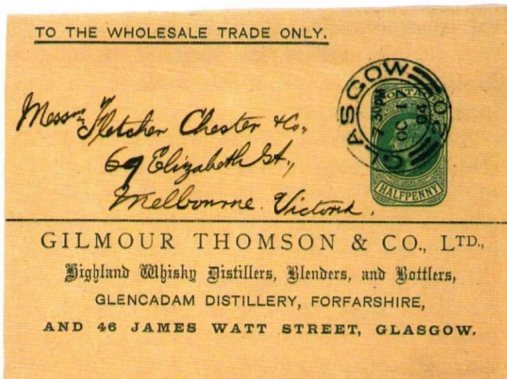 TO THE WHOLESALE TRADE ONLY.
GLASGOW
OC 1
HALFPENNY
Messrs Fletcher Chester & Co.,
69 Elizabeth St.,
Melbourne. Victoria.
GILMOUR THOMSON & CO., LTD.,
Highland Whisky Distillers, Blenders, and Bottlers,
GLENCADAM DISTILLERY, FORFARSHIRE,
AND 46 JAMES WATT STREET, GLASGOW.